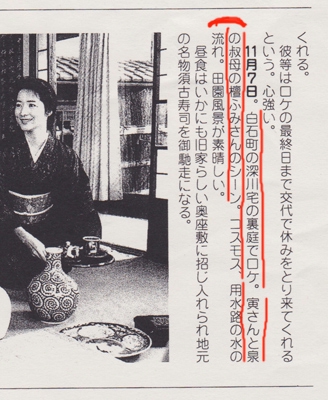 くれる。
彼等はロケの最終日まで交代で休みをとり来てくれる
という。心強い。
11月7日。白石町の深川宅の裏庭でロケ。寅さんと泉
の叔母の檀ふみさんのシーン。コスモス、用水路の水の
流れ。田園風景が素晴しい。
昼食はいかにも旧家らしい奥座敷に招じ入れられ地元
の名物須古寿司を御馳走になる。